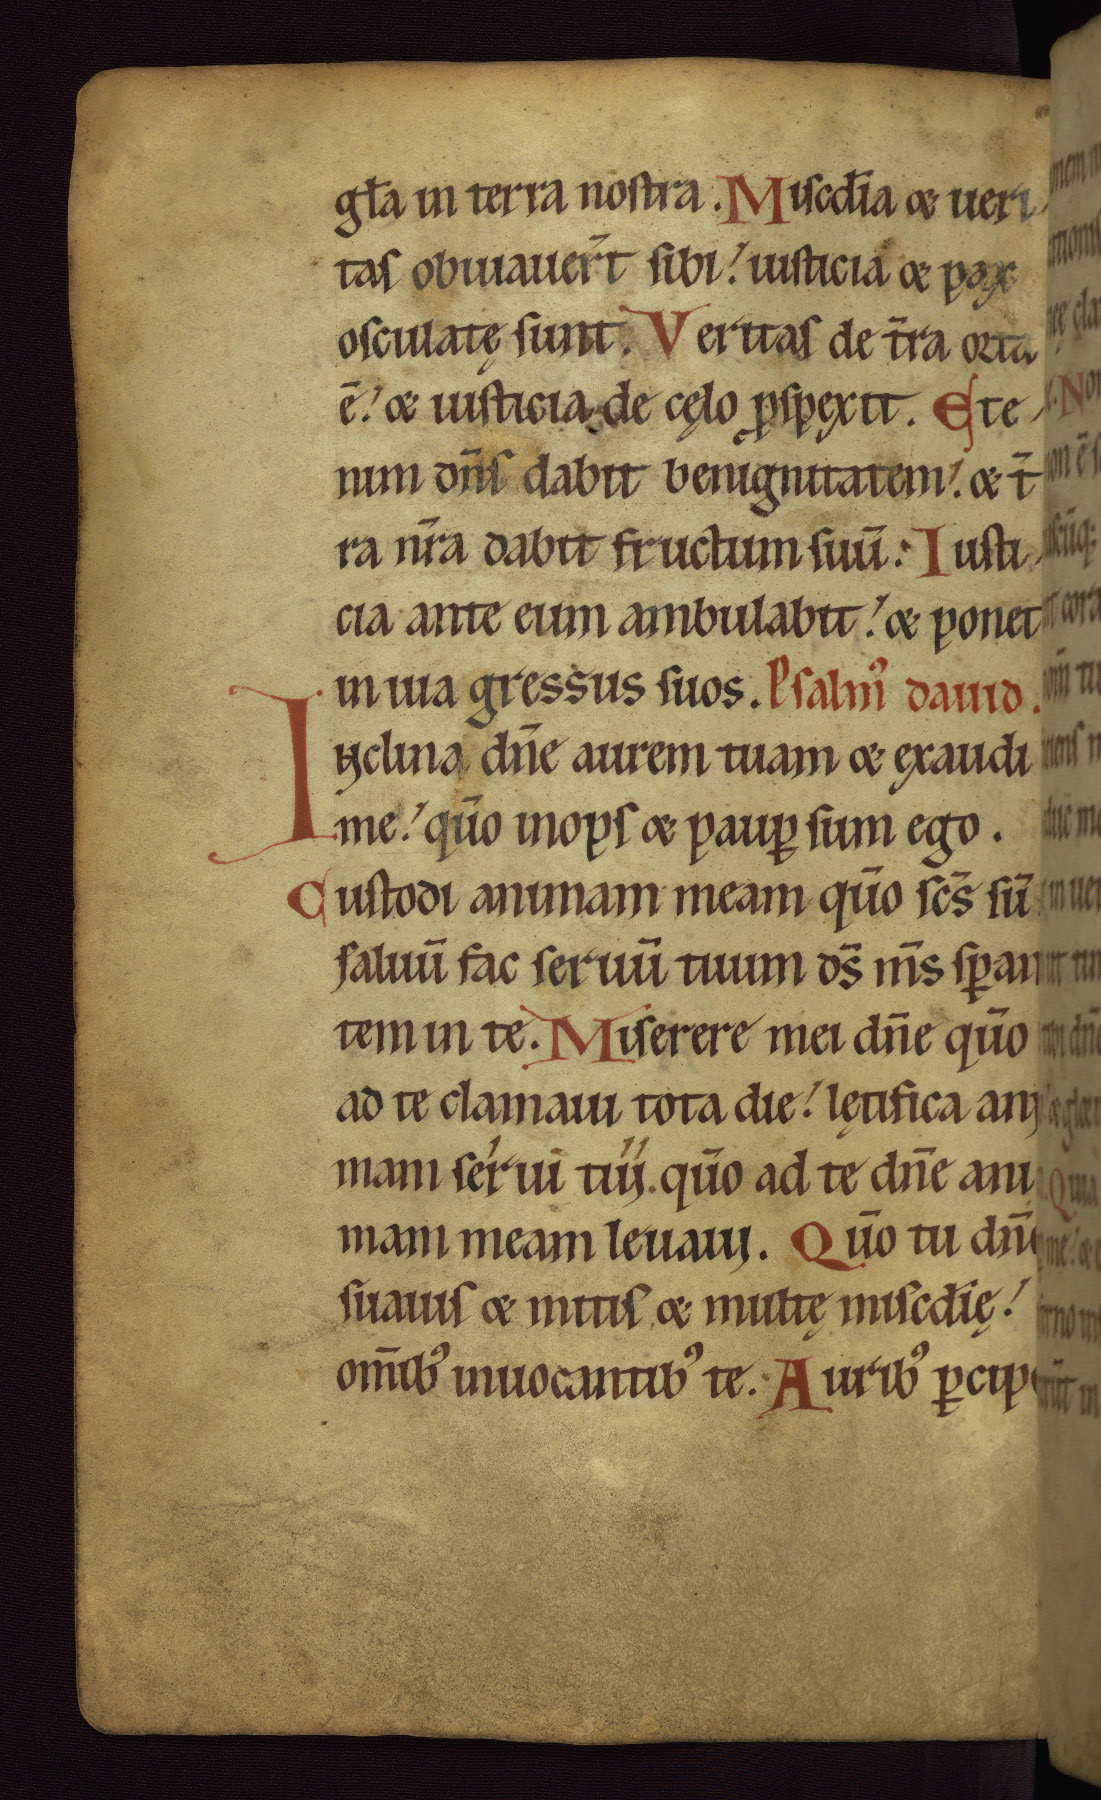 gła in terra nostra. Miscdia & ueri
tas obuiauert̄ sibi: iusticia & pax
osculatę sunt. Veritas de t̄ra orta
ē: & iusticia de cęlo ꝓspexit. Ete
nim dn̄s dabit benignitatem: & t̄
ra nr̄a dabit fructum suū: Iusti
cia ante eum ambulabit: & ponet
in uia gressus suos. Psalm᾿ dauid.
Inclina dn̄e aurem tuam & exaudi
me: qūo inops & paup̲ sum ego.
Custodi animam meam qūo sc̄s sū
saluū fac seruū tuum ds̄ ms̄ sꝑan
tem in te. Miserere mei dn̄e qūo
ad te clamaui tota die: lętifica ani
mam serui tui. qūo ad te dn̄e ani
mam meam leuaui. Qūo tu dn̄e
suauis & mitis & multę miscdię:
om̄ib᾿ inuocantib᾿ te. Aurib᾿ ꝑcipe